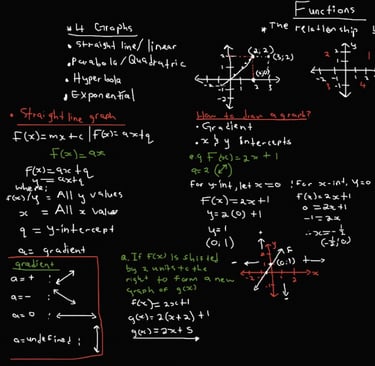 Functions
* 4 Graphs
• The relationship
• Straight line/linear
• Parabola/Quadratric
• Hyperbola
• Exponential
(2,2)
(3,2)
• Straight line graph
F(x)=mx+c | F(x)=ax+q
f(x)=ax
F(x)=ax+q
y=ax+q
where;
f(x)/y = All y values
x = All x value
q = y-intercept
a= gradient
gradient
a=+ :
a=- :
a=0 :
a=undefined :
How to draw a graph?
• Gradient
• x & y Intercepts
e.g F(x)=2x+1
a=2
For y-int, let x=0
F(x)=2x+1
y=2(0)+1
y=1
(0;1)
For x-int, y=0
F(x)=2x+1
0=2x+1
-1=2x
∴x=-½
(-½;0)
a. If F(x) is shifted
by 2 units to the
right to form a new
graph of g(x)
f(x)=2x+1
g(x)=2(x+2)+1
g(x)=2x+5
y
F
(0;1)
x